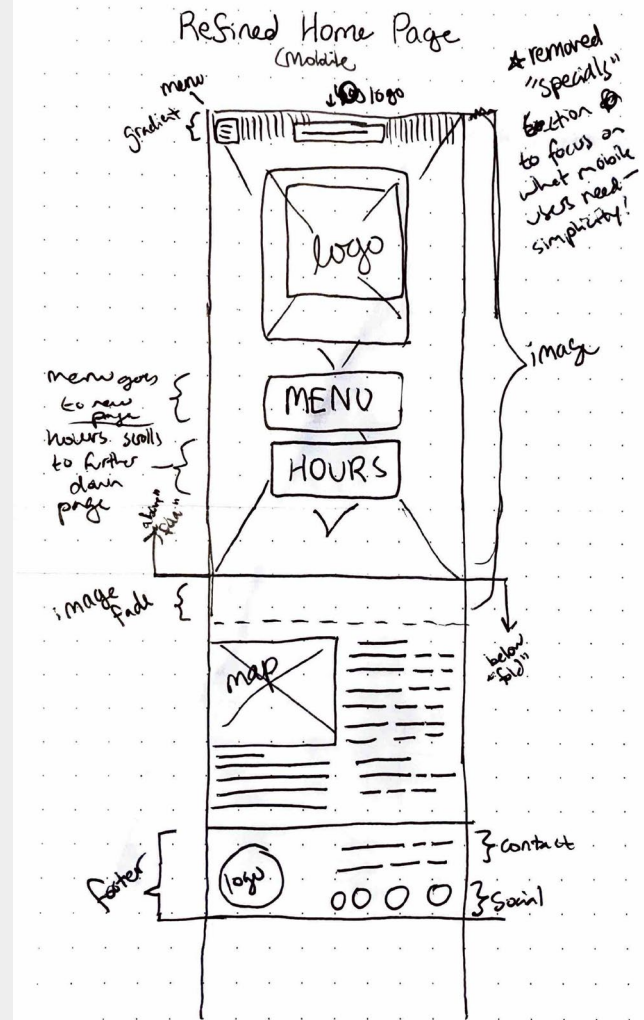 Refined Home Page
(Mobile
☆ removed
"specials"
section
to focus on
what mobile
users need—
simplicity!
menu
logo
gradient
logo
image
menu goes
to new
page
MENU
hours scrolls
to further
down
page
HOURS
"above
fold"
image
fade
below
"fold"
map
footer
logo
contact
Social